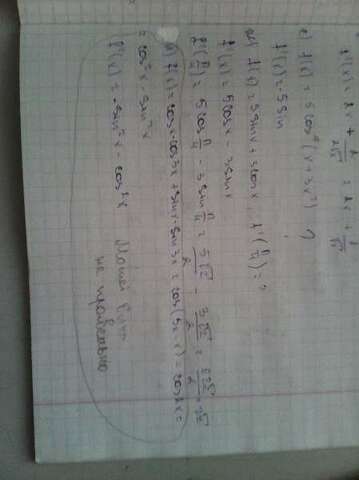 f'(x) = 2x + 2/2√x = 2x + 1/√x
е) f(x) = 5 cos⁴(x + 3x²) ?
f'(x) = -5 sin
f(x) = 5 sin x + 3 cos x, f'(π/4) = ?
f'(x) = 5 cos x - 3 sin x
f'(π/4) = 5 cos π/4 - 3 sin π/4 = 5√2/2 - 3√2/2 = 2√2/2 = √2
f(x) = cos x · cos 3x + sin x · sin 3x = cos(3x - x) = cos 2x =
= cos²x - sin²x
f'(x) = -sin²x - cos²x
Может быть
не правильно